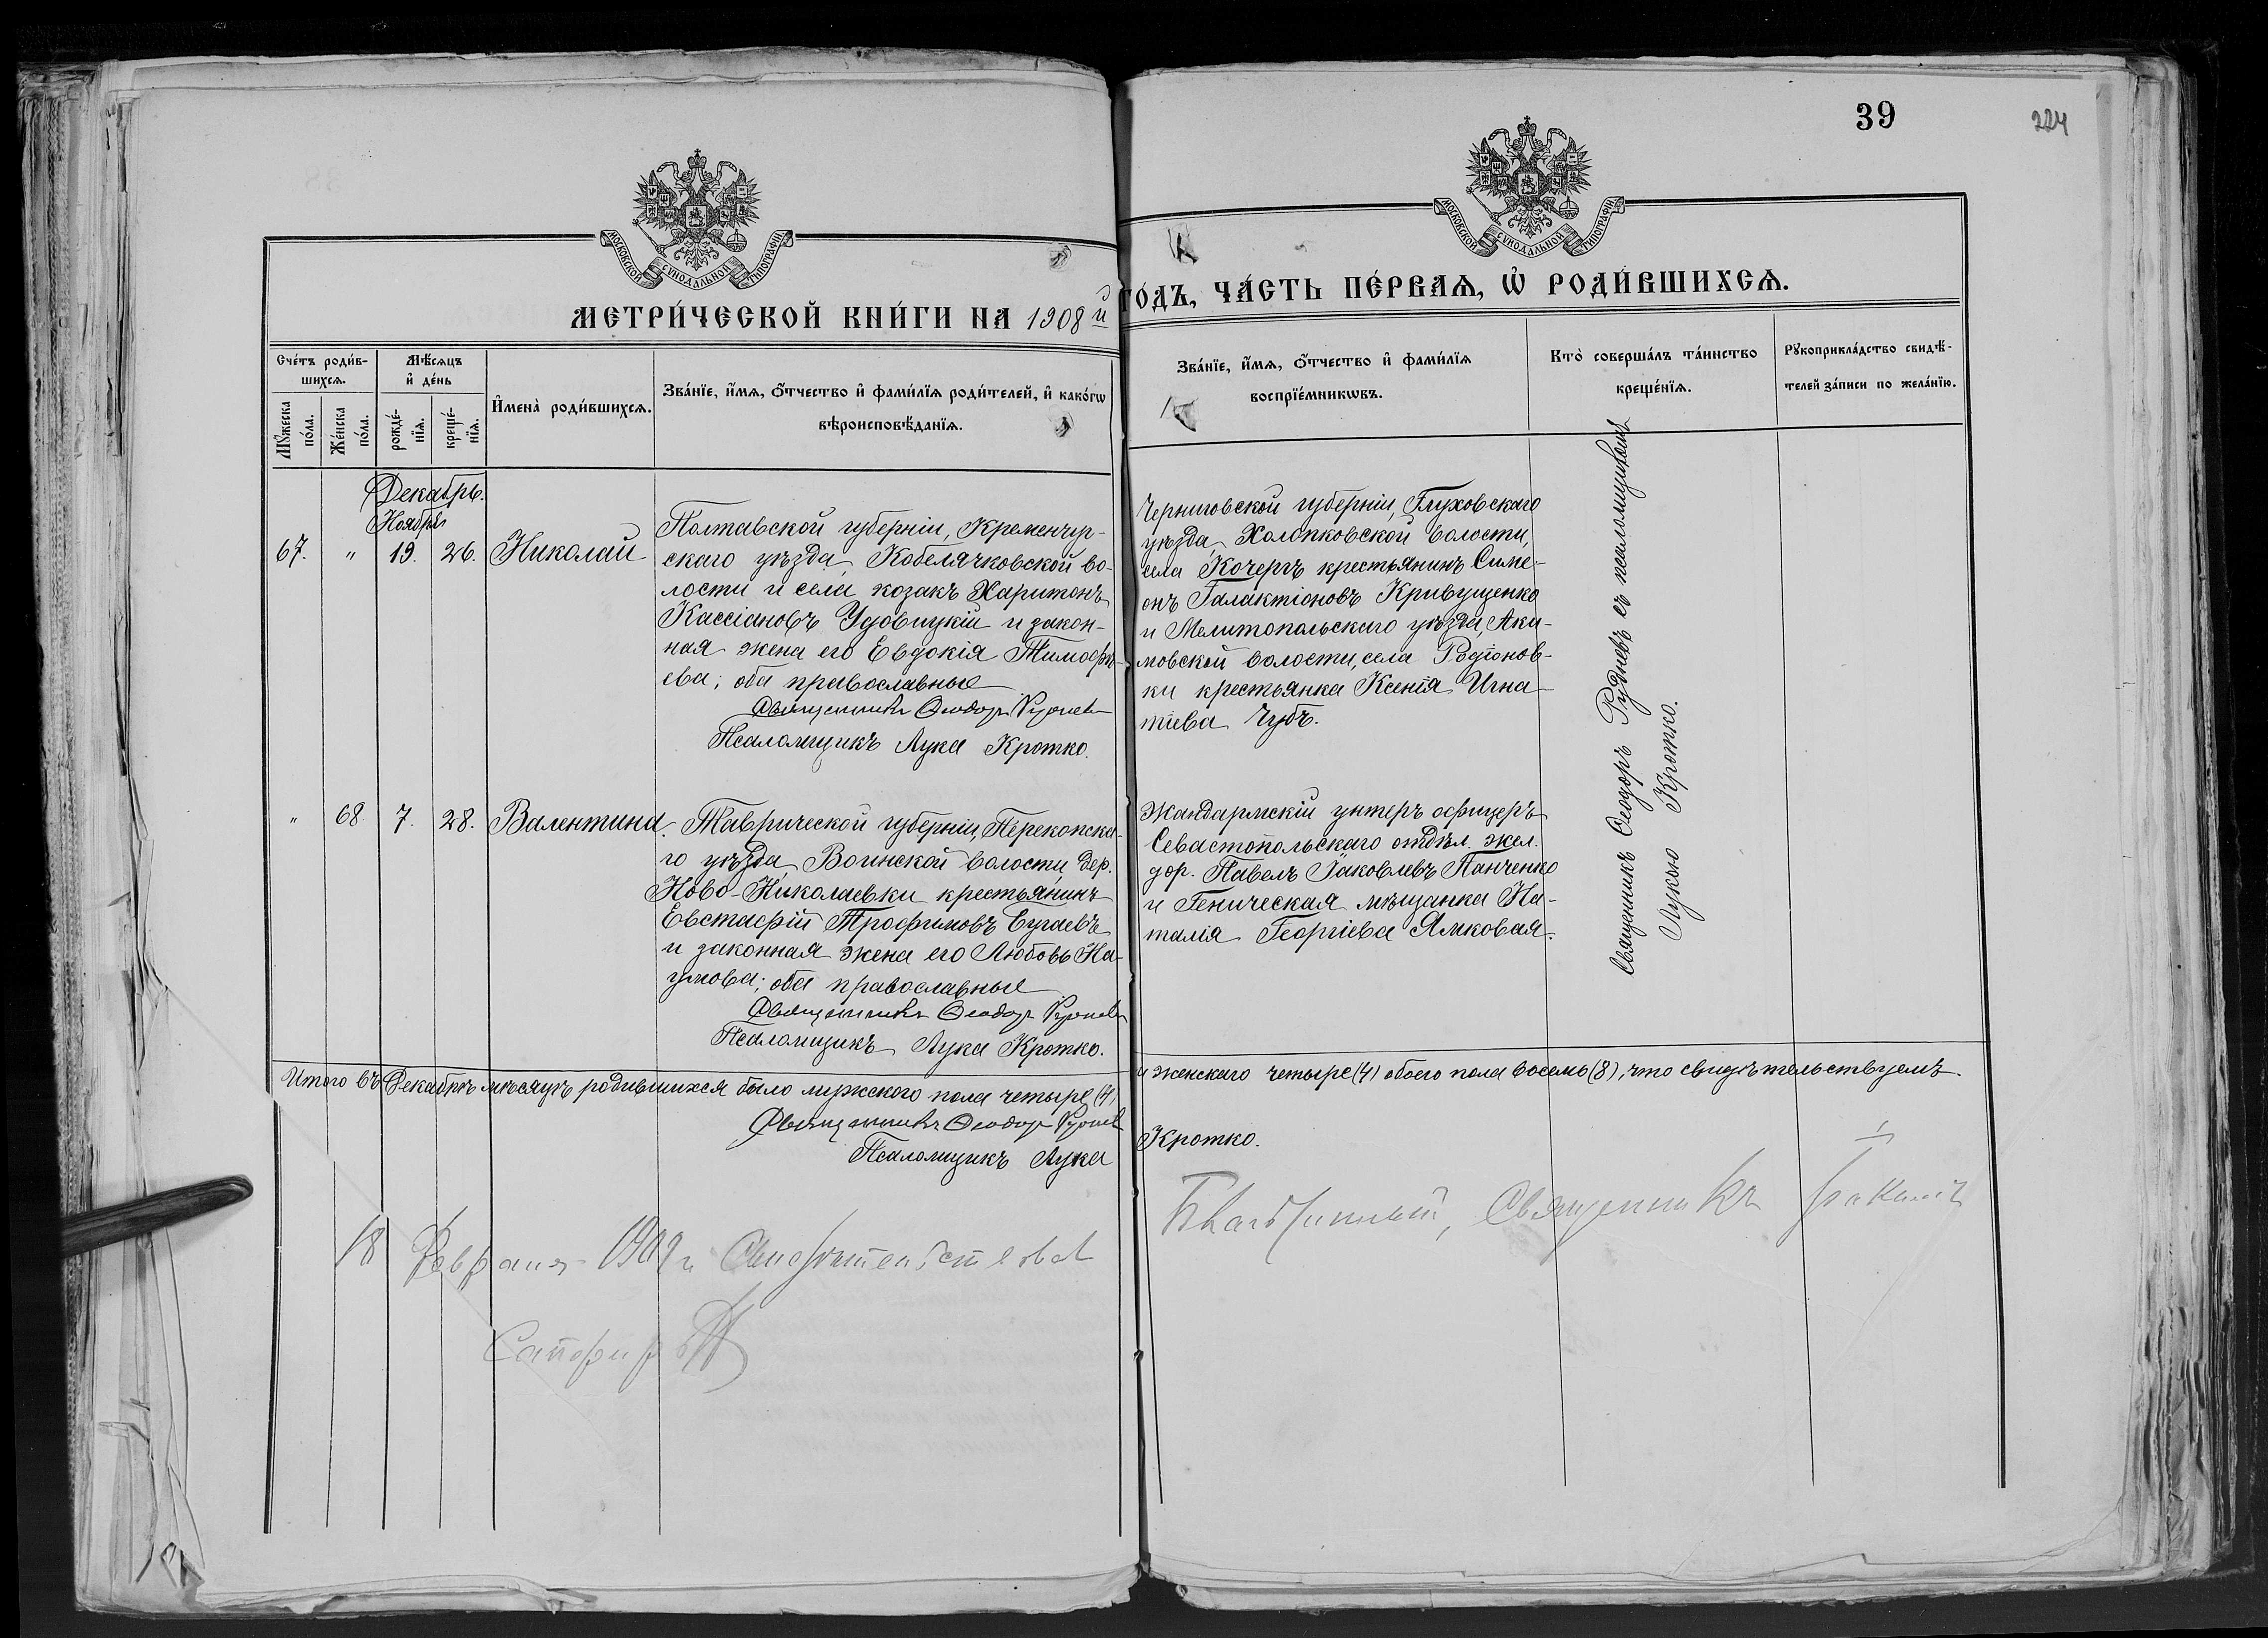 39
224
МОСКОВСКОЙ СѴНОДАЛЬНОЙ ТИПОГРАФІИ
МОСКОВСКОЙ СѴНОДАЛЬНОЙ ТИПОГРАФІИ
МЕТРИ́ЧЕСКОЙ КНИ́ГИ НА 1908 й ГО́ДЪ, ЧА́СТЬ ПЕ́РВАѦ, Ѡ҆ РОДИ́ВШИХСѦ.
Сче́тъ роди́в-
шихсѧ.
Мꙋ́жеска
по́ла.
Же́нска
по́ла.
Мѣ́сѧцъ
и҆ де́нь
рожде́-
нїѧ.
креще́-
нїѧ.
И҆мена̀ роди́вшихсѧ.
Зва́нїе, и҆́мѧ, ѻ҆́тчество и҆ фами́лїѧ роди́телей, и҆ како́гѡ
вѣроисповѣ́данїѧ.
Зва́нїе, и҆́мѧ, ѻ҆́тчество и҆ фами́лїѧ
воспрїе́мникѡвъ.
Кто̀ соверша́лъ та́инство
креще́нїѧ.
Рꙋкоприкла́дство свидѣ́-
телей за́писи по жела́нїю.
Декабрь.
Ноября
67. " 19. 26. Николай
Полтавской губерніи, Кременчуг-
скаго уѣзда, Кобелячковской во-
лости и села козакъ Харитонъ
Кассіановъ Удовицкій и закон-
ная жена его Евдокія Тимоѳѣ-
ева; оба православные
Священникъ Ѳеодоръ Руднев
Псаломщикъ Лука Кротко.
Черниговской губерніи, Глуховскаго
уѣзда, Холопковской волости,
села Кочергъ крестьянинъ Симе-
онъ Галактіоновъ Кривущенко
и Мелитопольскаго уѣзда, Аки-
мовской волости, села Родіонов-
ки крестьянка Ксенія Игна-
тіева Чубъ.
Священникъ Ѳеодоръ Рудневъ съ псаломщикомъ
Лукою Кротко.
" 68. 7. 28. Валентина
Таврической губерніи, Перекопска-
го уѣзда, Воинской волости, дер.
Ново-Николаевки крестьянинъ
Евстафій Трофимовъ Бугаевъ
и законная жена его Любовь На-
умова; оба православные
Священникъ Ѳеодоръ Руднев
Псаломщикъ Лука Кротко.
Жандармскій унтеръ офицеръ
Севастопольскаго отдѣл. жел.
дор. Павелъ Іаковлевъ Панченко
и Геническая мѣщанка На-
талія Георгіева Ямковая.
Итого въ Декабрѣ мѣсяцѣ родившихся было мужского пола четыре (4) и женскаго четыре (4) обоего пола восемь (8), что свидѣтельствуемъ.
Священникъ Ѳеодоръ Руднев
Псаломщикъ Лука Кротко.
18 Февраля 1909 г. Свидѣтельствовал Благочинный, Священникъ